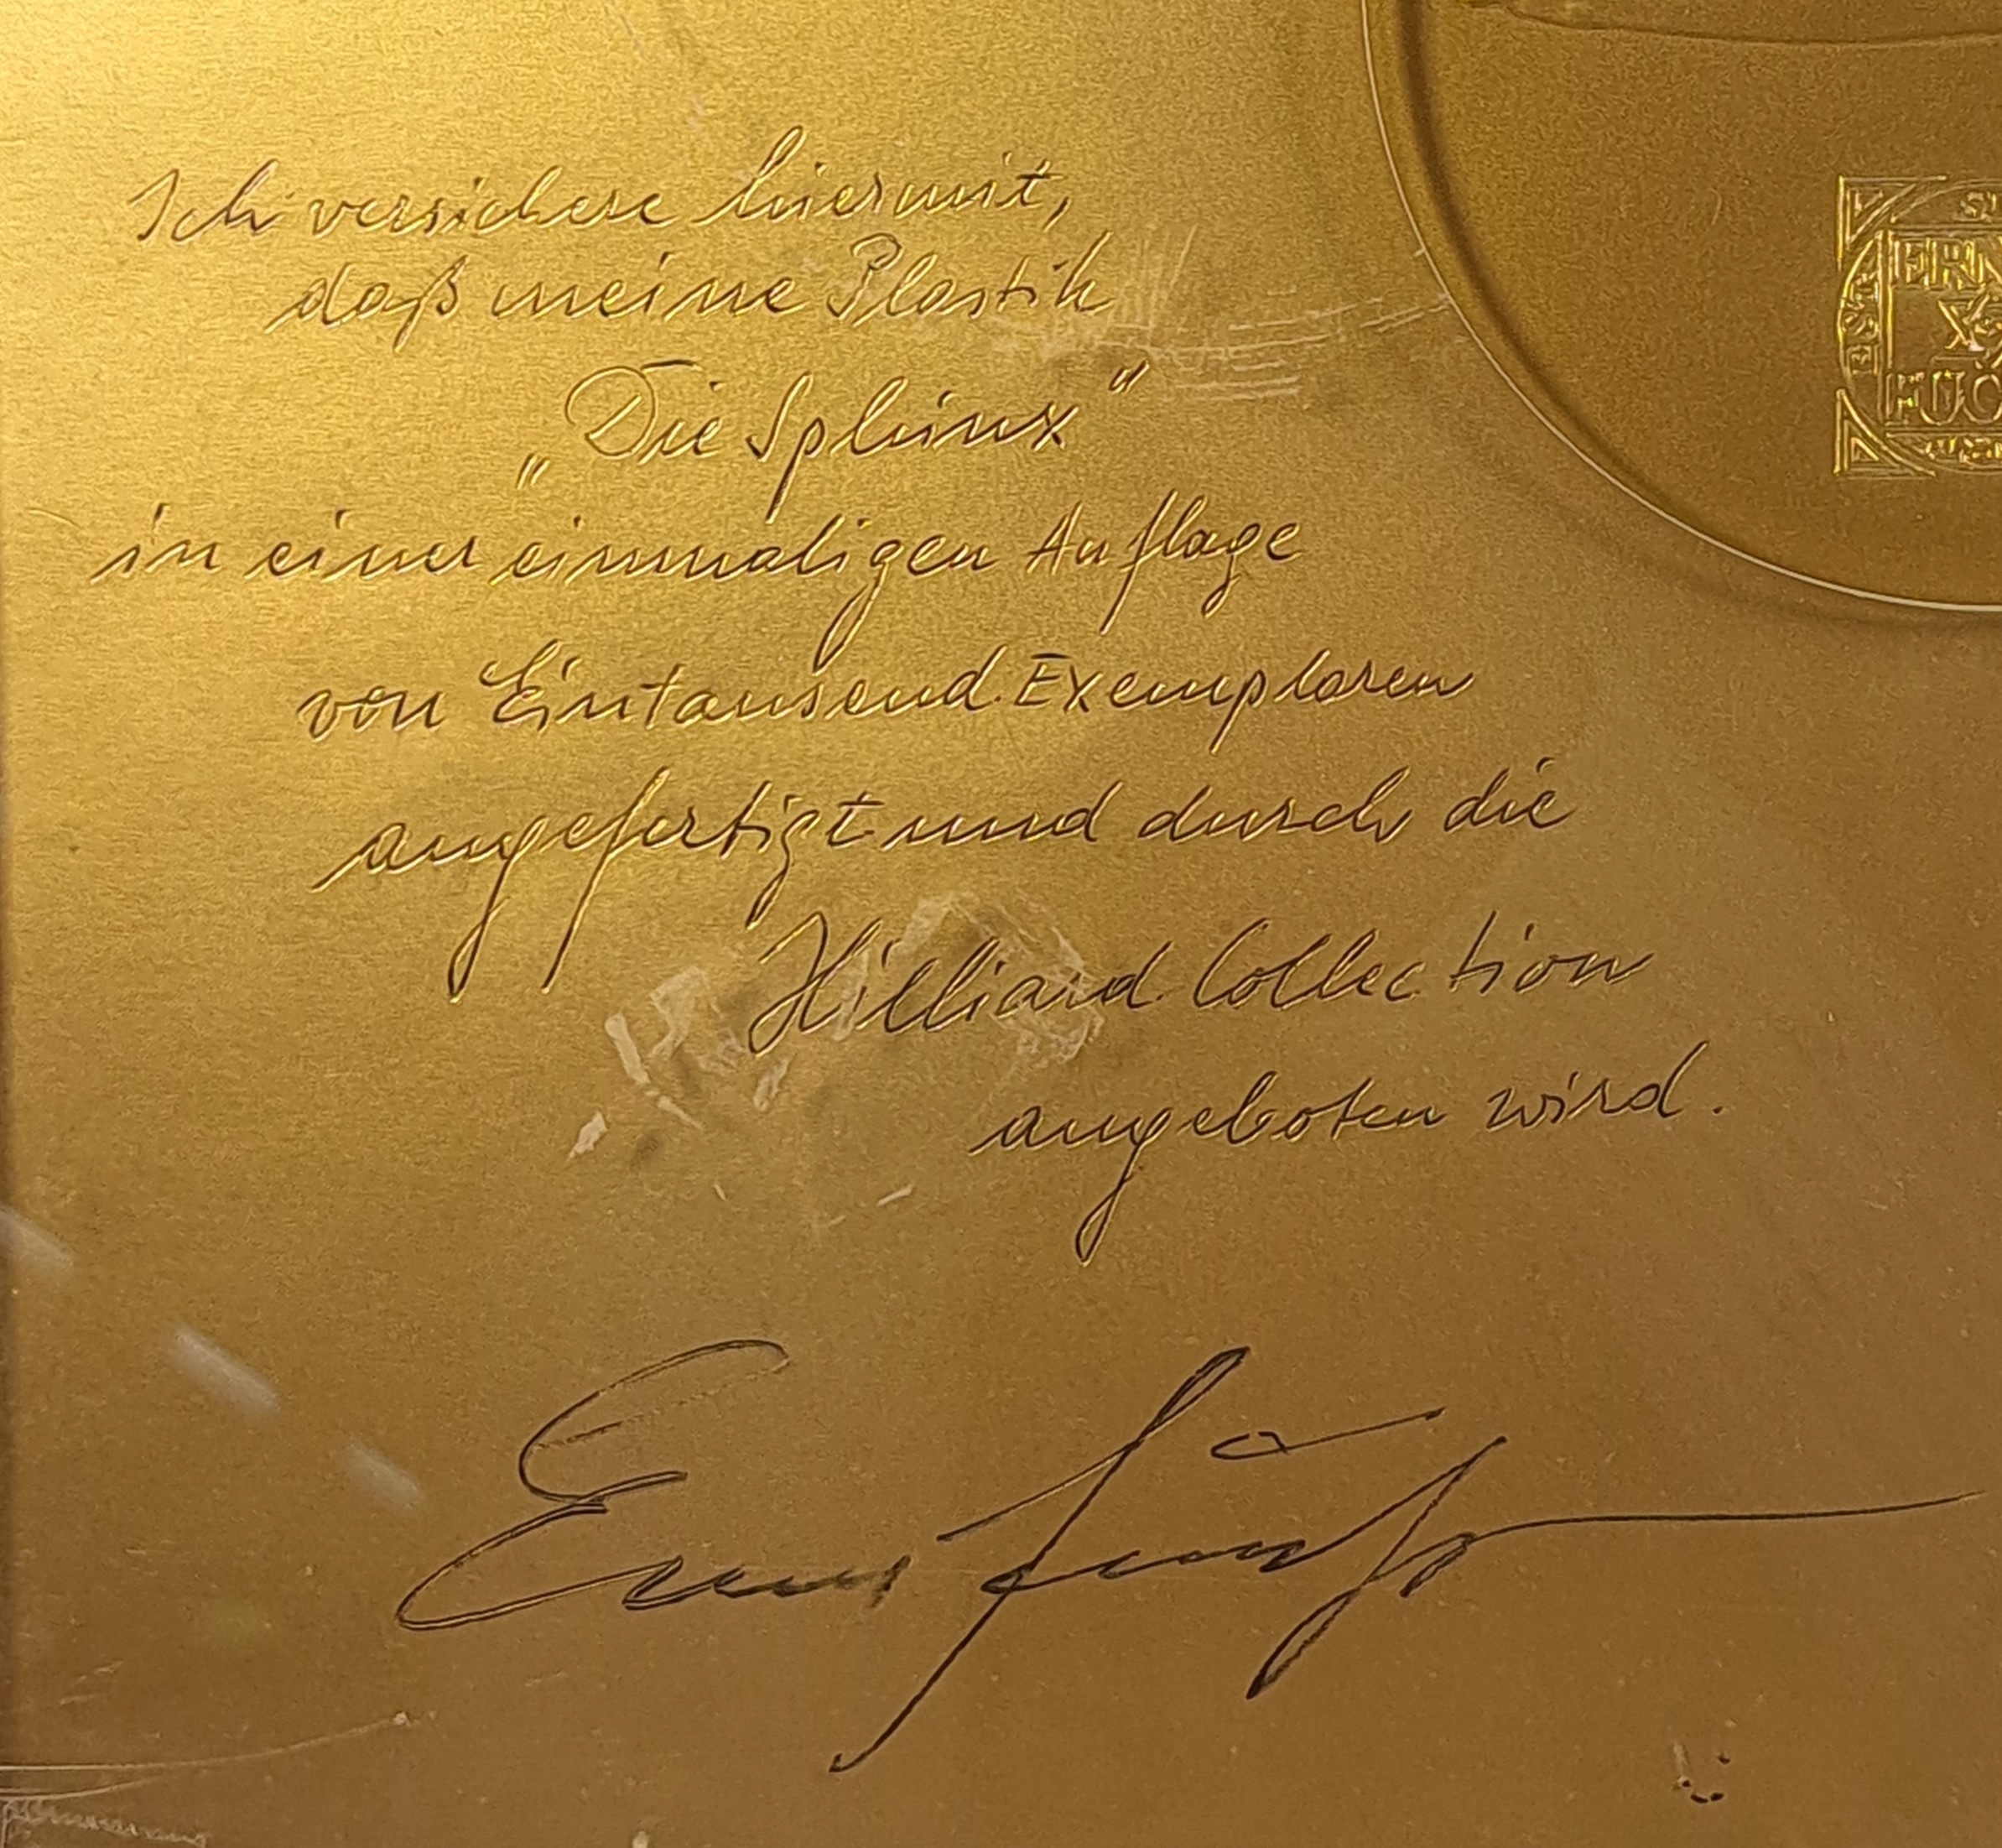 Ich versichere hiermit,
daß meine Plastik
„Die Sphinx"
in einer einmaligen Auflage
von Eintausend Exemplaren
angefertigt und durch die
Hilliard Collection
angeboten wird.
Ernst Fuchs
ERN
FUC